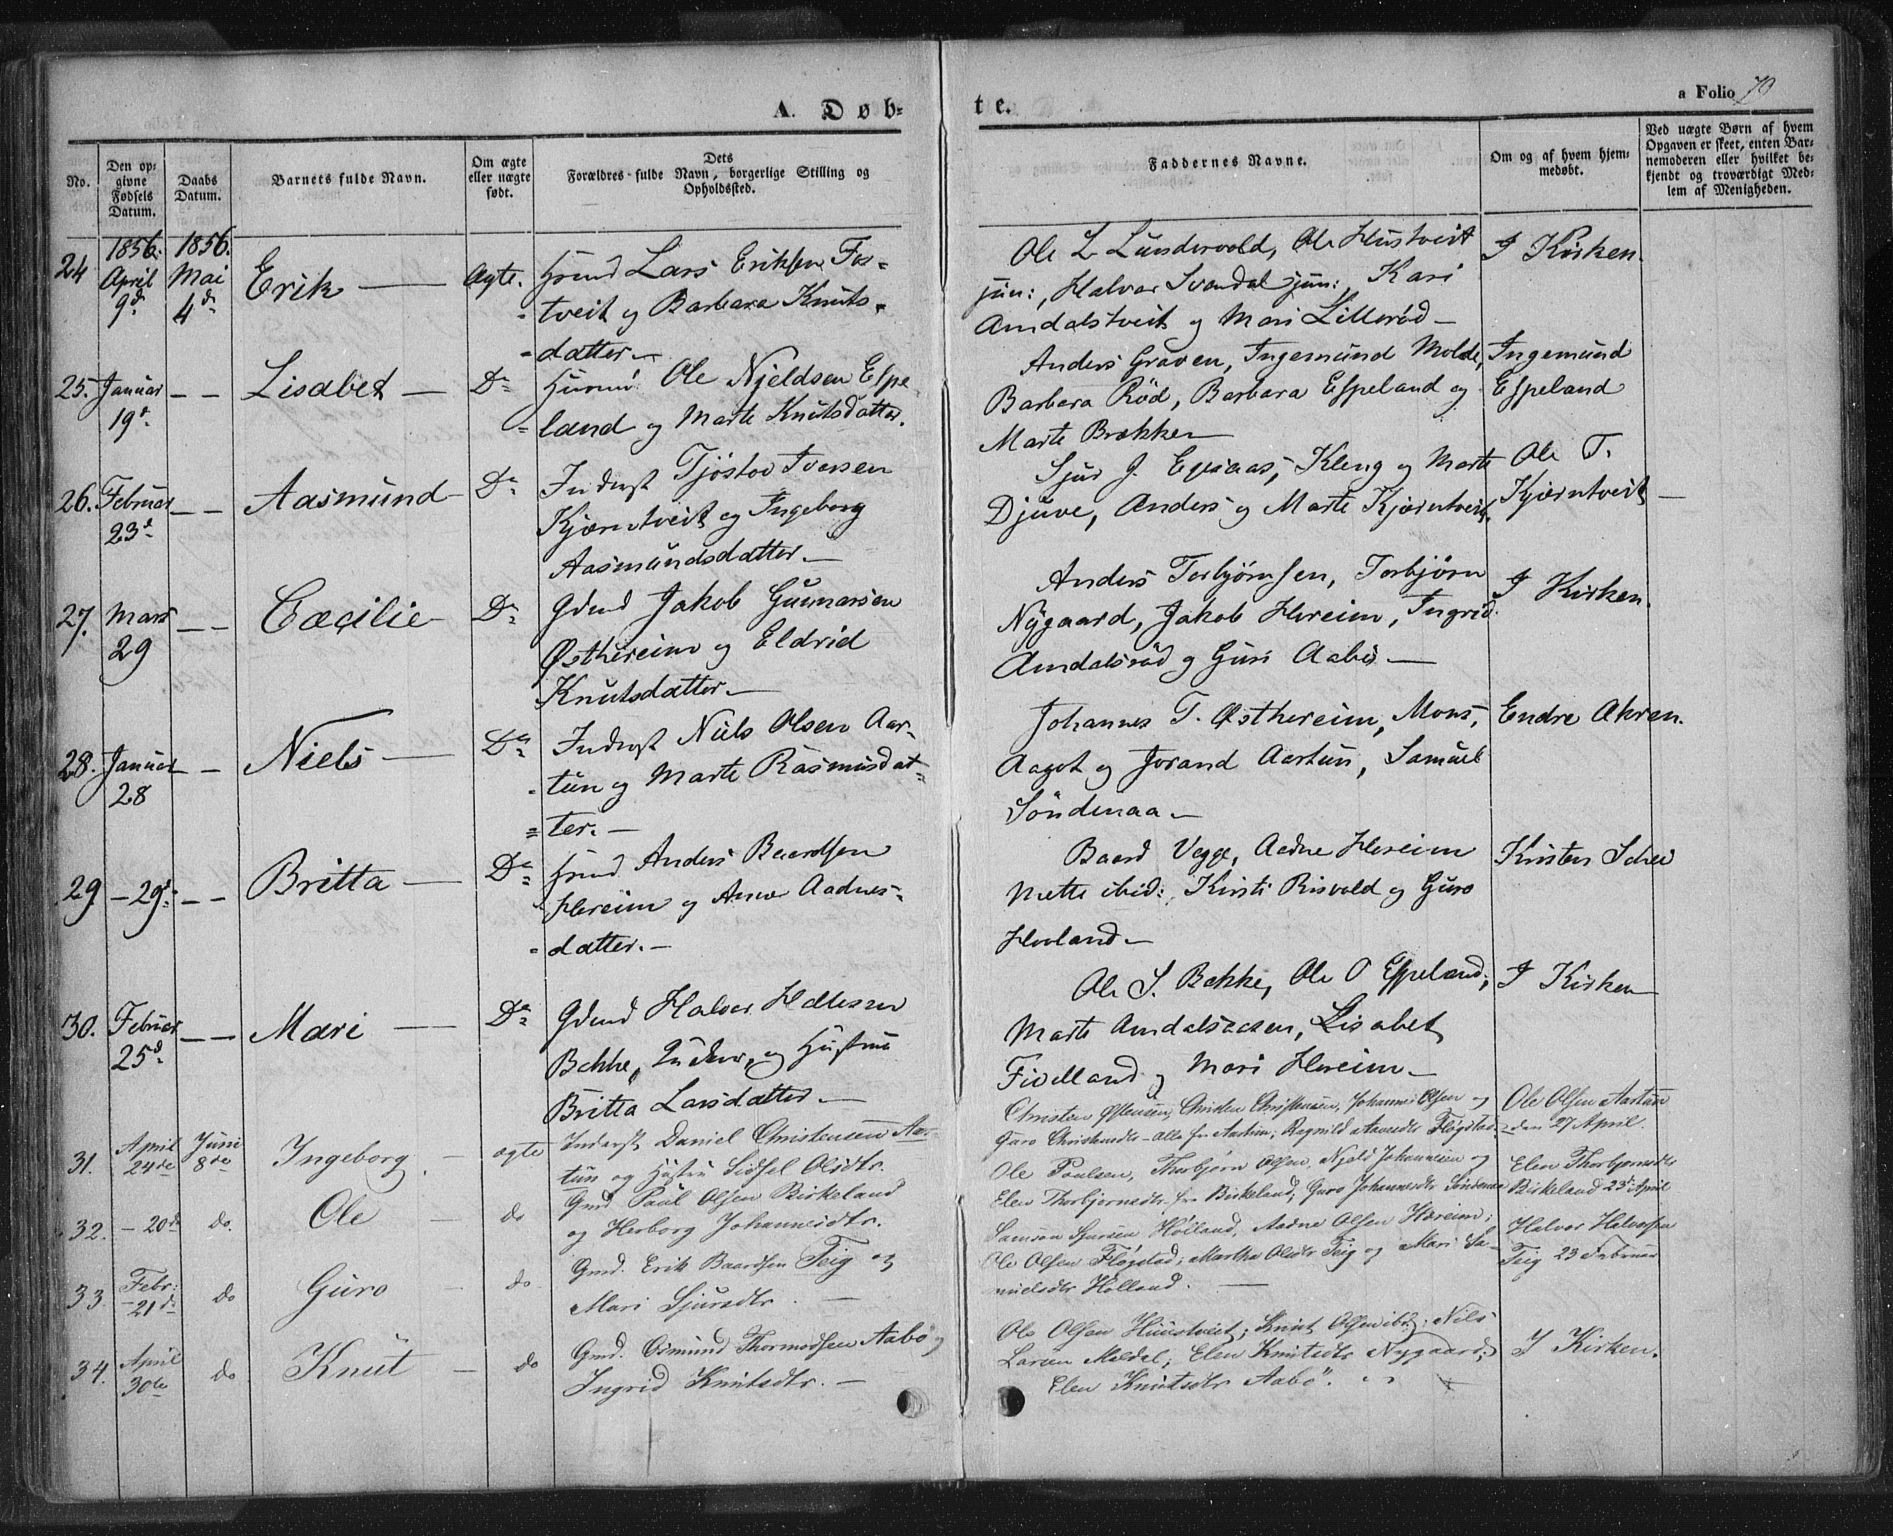 A. Døb-
te.
a Folio 70
No.
Den op-
givne
Fødsels
Datum.
Daabs
Datum.
Barnets fulde Navn.
Om ægte
eller uægte
født.
Dets
Forældres fulde Navn, borgerlige Stilling og
Opholdssted.
Faddernes Navne.
Om og af hvem hjem-
medøbt.
Ved uægte Børn af hvem
Opgaven er skeet, enten Bar-
nemoderen eller hvilket be-
kjendt og troværdigt Med-
lem af Menigheden.
24
1856.
April
9d
1856.
Mai
4d
Erik —
Ægte.
Lars Eriksen Fos=
=tveit og Barbara Knuts=
=datter. —
Ole L Lundervold, Ole Hustveit
jun:, Halvor Svandal jun:, Kari
Amdalstveit og Mari Lillerød —
I Kirken.
25.
Januar
19d
— —
Lisabet —
Do
Ole Njeldsen Espe
=land og Marte Knutsdatter.
Anders Graven, Ingemund Molde,
Barbara Rød, Barbara Espeland og
Marte Brekken —
Ingemund
Espeland
26.
Februar
23d
— —
Aasmund —
Do
Inderst Tjöstov Iversen
Kjærntveit og Ingeborg
Aasmundsdatter. —
Sjur J. Kleng og Marte
Djuve, Anders og Marte Kjærntveit.
Ole T.
Kjærntveit —
27.
Mars
29
— —
Cæcilie —
Do
Gdmd Jakob Gunnarsen
Østhereim og Eldrid
Knutsdatter. —
Anders Torbjørnsen, Torbjørn
Nygaard, Jakob Hereim, Ingrid
Amdalsrød og Guri Aabø. —
I Kirken.
28.
Januar
28
— —
Niels —
Do
Inderst Niels Olsen Aar-
=tun og Marte Rasmusdat=
=ter. —
Johannes T. Østhereim, Mons,
Aagot og Jorand Aartun, Samuel
Söndenaa —
Endre Akren.
29
— 29d
— —
Britta —
Do
Anders Baardsen
Hereim og Anna Aadnes=
=datter. —
Baard Vegge, Aadne Hereim
Mette ibid:, Kirsti Risvold og Guro
Hovland —
Kirsten Schei
30.
Februar
25d
— —
Mari —
Do
Gdmd Halvor
Bakke, og Hustru
Britta Larsdatter. —
Ole S. Bakke, Ole O Espeland,
Marte Amdalsaasen, Lisabet
Fivelland og Mari Hereim —
I Kirken
31.
April
24de
Juni
8de
Ingeborg. —
ægte
Inderst Daniel Christensen Aar-
tun og Hustru Sidsel Olsdtr.
Christen Østensen, Christen Christensen, Johannes Olsen og
Guro Christensdtr — alle fra Aartun; Ragnild Flögstad
Ole Olsen Aartun
den 27 April.
32.
— 20de
do.
Ole —
do
Gmd Paul Olsen Birkeland
og Herborg Johannesdtr.
Ole Poulsen, Thorbjørn Olsen, Njeld Johannesen og
Elen Thorbjørnsdtr fra Birkeland; Guro Johannesdtr Söndenaa
Elen Thorbjørnsdtr
Birkeland 23d April
33.
Febr:
— 21de
do
Guro —
do
Gmd. Erik Baardsen Teig og
Mari Sjursdtr. —
Samson Sjursen Hölland, Aadne Olsen Hæreim;
Ole Olsen Flögstad; Martha Olsdtr Teig og Mari Sa-
muelsdtr Hölland. —
Halvor Halvorsen
Teig 23 Februar
34.
April
30de
do
Knut —
do
Gmd. Osmund Thormodsen Aabö og
Ingrid Knutsdtr. —
Ole Olsen Huustveit; Knut Olsen ibd; Nils
Larsen Meldal; Elen Knutsdtr Nygaard;
Elen Knutsdtr Aabö.
I Kirken.